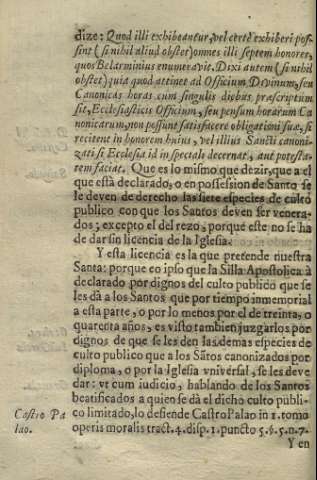 dize: Quod illi exhibeantur, vel certè exhiberi pos-
sint (si nihil aliud obstet) omnes illi septem honores,
quos Belarminius enumeravit. Dixi autem (si nihil
obstet) quia quod attinet ad Officium Divinum, seu
Canonicas horas cum singulis diebus præscriptum
sit, Ecclesiasticis Officium, seu pensum horarum Ca
nonicarum, non possunt satisfacere obligationi suæ, si
recitent in honorem huius, vel illius Sancti canoni-
zati si Ecclesia id in speciale decernat, aut potesta-
tem faciat. Que es lo mismo que dezir, que a el
que està declarado, o en possession de Santo se
le deven de derecho las siete especies de culto
publico con que los Santos deven ser venera-
dos; excepto el del rezo, porque este no se ha
de dar sin licencia de la Iglesia.
Y esta licencia es la que pretende nuestra
Santa: porque eo ipso que la Silla Apostolica à
declarado por dignos del culto publico que se
les dà a los Santos que por tiempo inmemorial
a esta parte, o por lo menos por el de treinta, o
quarenta años, es visto tambien juzgarlos por
dignos de que se les den las demas especies de
culto publico que a los Sãtos canonizados por
diploma, o por la Iglesia vniversal, se les deve
dar: vt cum iudicio, hablando de los Santos
beatificados a quien se dà el dicho culto públi-
co limitado, lo defiende Castro Palao in 1. tomo
operis moralis tract. 4. disp. 1. puncto 5. §. 5. n. 7.
Castro Pa
lao.
Y en